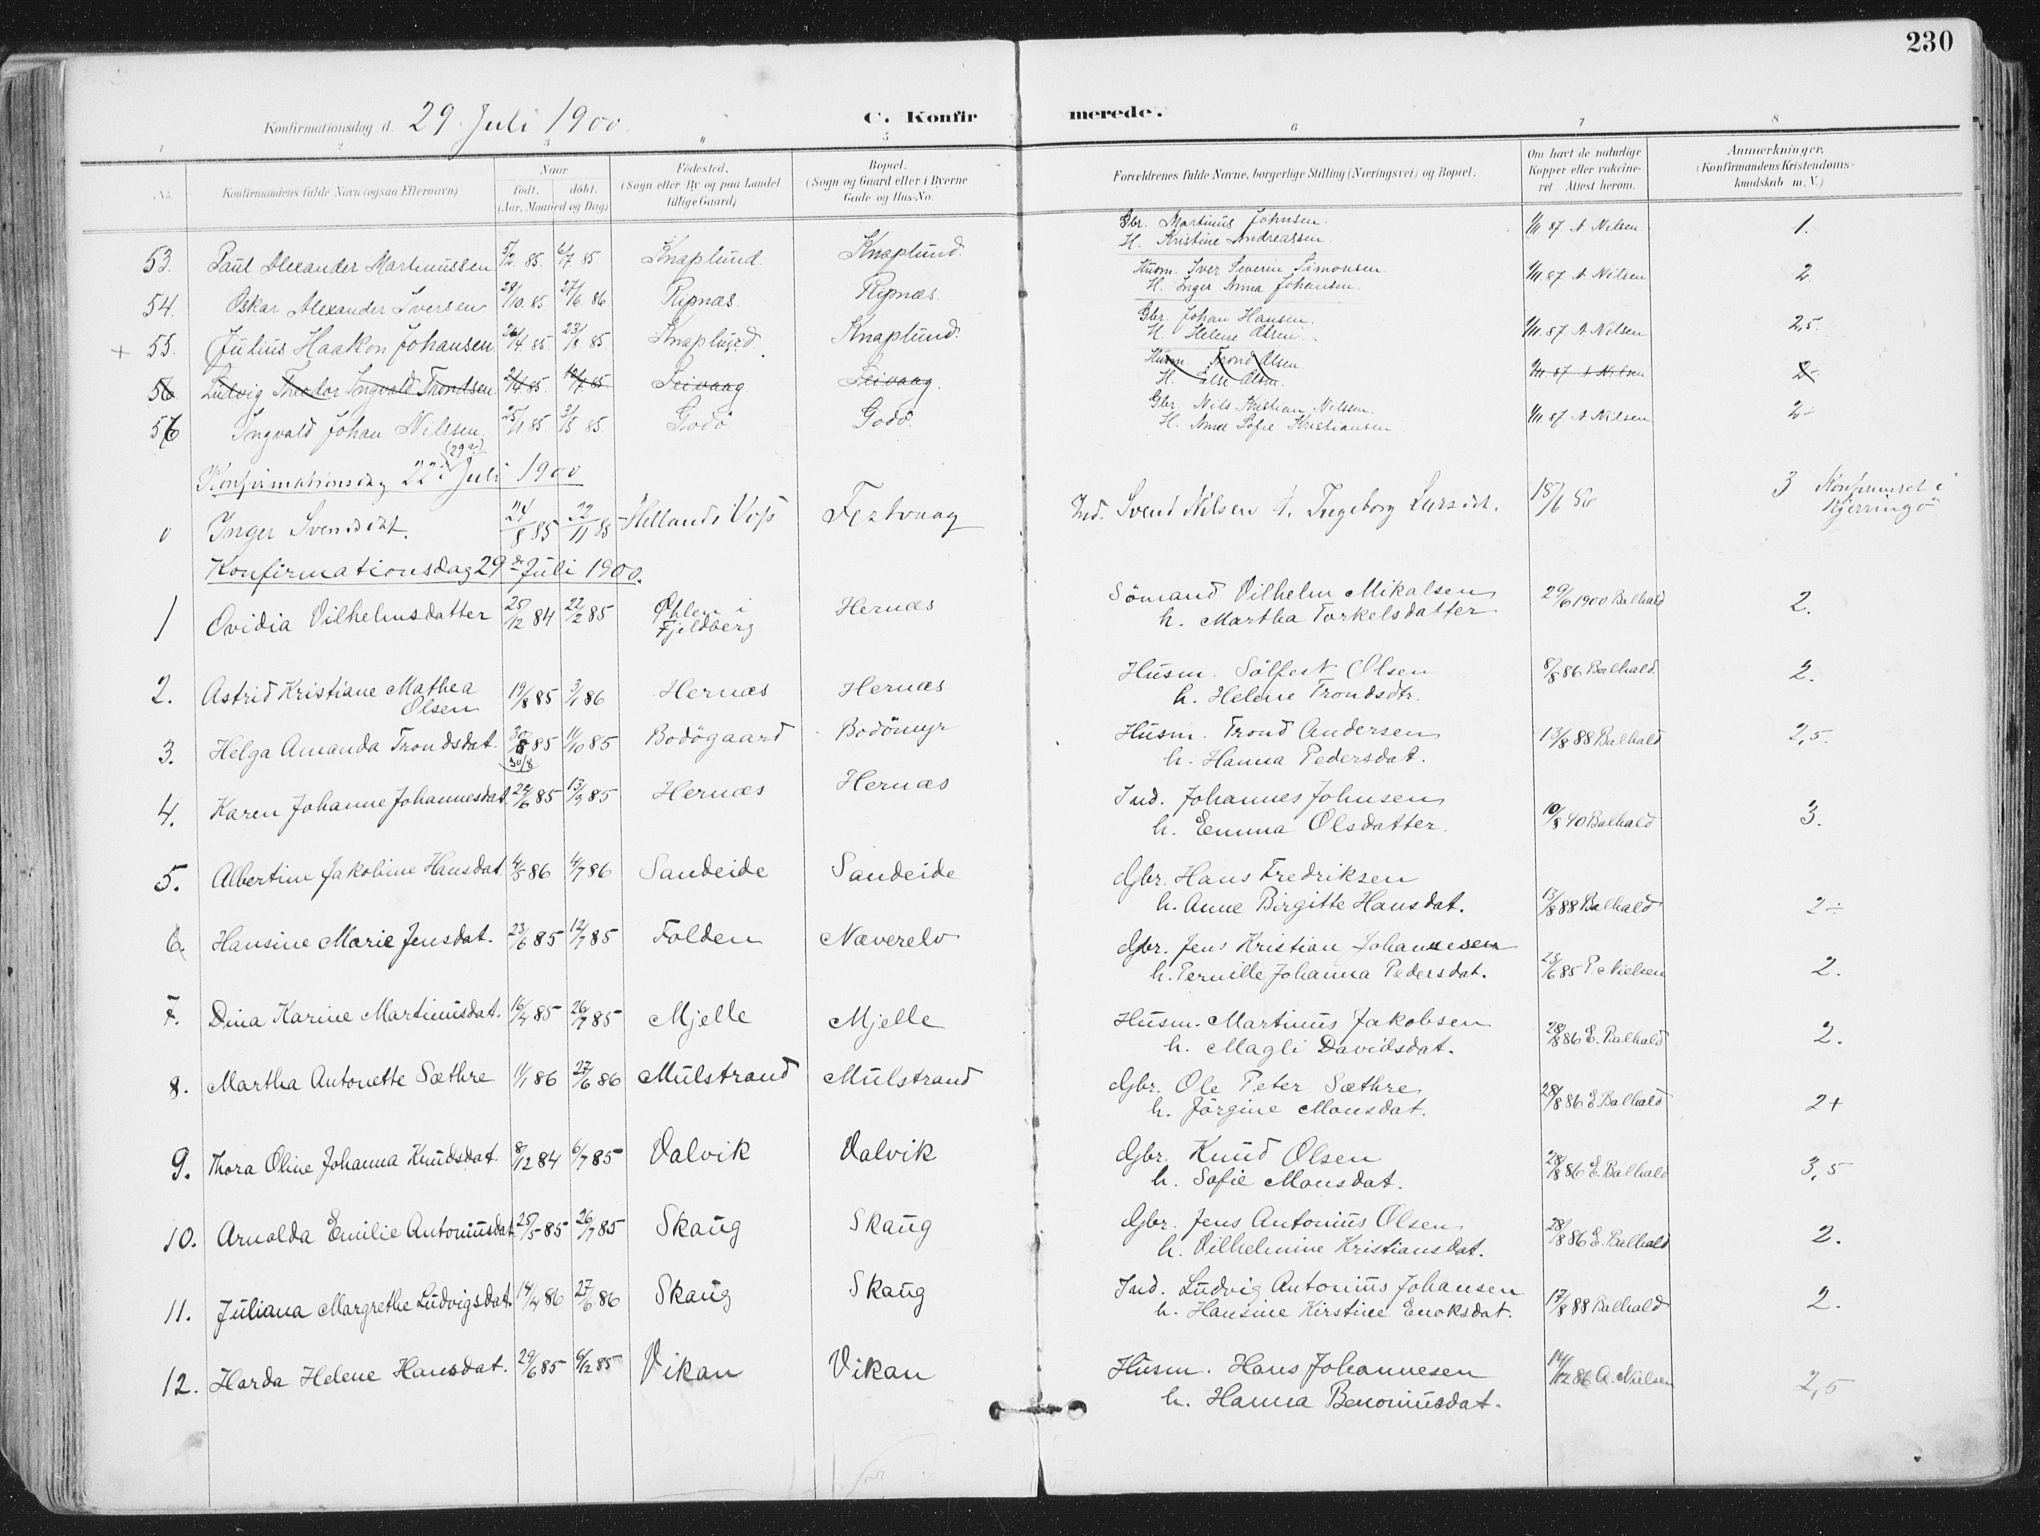 230
Konfirmationsdag d. 29 Juli 1900.
C. Konfirmerede.
1 2 3 4 5 6 7 8
No. Konfirmandens fulde Navn (ogsaa Efternavn) Naar født, døbt. (Aar, Maaned og Dag) Fødested. (Sogn eller By og paa Landet tillige Gaard) Bopæl. (Sogn og Gaard eller i Byerne Gade og Hus-No. Forældrenes fulde Navne, borgerlige Stilling (Næringsvei) og Bopæl. Om havt de naturlige Kopper eller vakcineret. Attest herom. Anmærkninger. (Konfirmandens Kristendomskundskab m. V.)
53. Paul Alexander Martinussen 5/2. 85. 6/7 85 Knaplund. Knaplund. Gbr. Martinus Johnsen. 1/11 87 A Nilsen 1.
H. Kristine Andreassen.
54. Oskar Alexander Iversen 28/10. 85 27/6. 86 Ripnæs. Ripnæs. Husm. Iver Severin Simonsen. 1/11 87 A Nilsen 2
H. Inger Anna Johansen.
+ 55. Julius Haakon Johansen 26/4. 85. 23/8 85 Knaplund. Knaplund. Gbr. Johan Hansen. 1/11. 87 A Nilsen 2,5.
H. Helene Olsen.
56 Ludvig Theodor Ingvald Trondsen 85 85 Seivaag Seivaag. Husm. Trond Olsen. 1/11 87 A Nilsen 2
H. Else Olsen.
56 Ingvald Johan Nilssen 25/1 85 3/5 85 Godö Godö. Gbr. Nils Kristian Nilssen. 1/11 87 A Nilsen 2-
H. Anne Sofie Kristiansen
(29de)
Konfirmationsdag 22. Juli 1900
0 Inger Svensdat. 24/8 85 22/11 85 Hellands Voss Festvaag Ind. Svend Nilsen h. Ingeborg Larsdt. 15/6 3 Konfirmeret i Kjerringö
Konfirmationsdag 29de Juli 1900.
1 Ovidia Vilhelmsdatter 25/12 84 22/2 85 Ølen i Fjeldberg Hernæs Sömand Vilhelm Mikalsen 29/6 1900 Balhald 2.
h. Martha Torkelsdatter
2. Astrid Kristiane Mathea Olsen 19/8 85 3/1 86 Hernæs Hernæs Husm. Sölfest Olsen 8/8 86 Balhald. 2.
h. Helene Trondsdtr.
3. Helga Amanda Trondsdat. 30/8 85 11/10 85 Bodögaard Bodömyr Husm. Trond Andersen 13/8 88 Balhald 2,5.
30/8
h. Hanna Pedersdat.
4. Karen Johanne Johannesdat. 22/6 85 13/9 85 Hernæs Hernæs Ind. Johannes Johnsen 10/8 40 Balhald 3.
h. Emma Olsdatter.
5. Albertine Jakobine Hansdat. 4/5 86 4/7 86 Sandeide Sandeide Gbr. Hans Fredriksen
h. Anne Birgitte Hansdat. 13/8 88 Balhald 2÷
6. Hansine Marie Jensdat. 23/6 85 12/7 85 Folden Næverelv Gbr. Jens Kristian Johannesen
h. Pernille Johanna Pedersdat. 23/6 85 P. Nielsen 2.
7. Dina Karine Martinusdat. 16/4 85 26/7 85 Mjelle Mjelle Husm. Martinus Jakobsen
h. Magli Davidsdat. 28/8 86 E. Balhald 2.
8. Martha Antonette Sæthre 11/1 86 27/6 86 Mulstrand Mulstrand Gbr. Ole Peter Sæthre
h. Jörgine Monsdat. 28/8 86 E Balhald 2+
9. Thora Oline Johanna Knudsdat. 8/12 84 6/7 85 Valvik Valvik Gbr. Knud Olsen
h. Sofie Monsdat. 28/8 86 E. Balhald 3,5
10. Arnolda Emilie Antoniusdat 25/5 85 26/7 85 Skaug Skaug Gbr. Jens Antonius Olsen
h. Vilhelmine Kristiansdat. 28/8 86 E. Balhald 2.
11. Juliana Margrethe Ludvigsdat. 14/4 86 27/6 86 Skaug Skaug Ind. Ludvig Antonius Johansen
h. Hansine Kirstine Enoksdat. 17/8 88 Balhald 2.
12. Harda Helene Hansdat. 29/6 85 6/12 85 Vikan Vikan Husm. Hans Johannesen 14/12 86 A. Nielsen 2,5
h. Hanna Benoniusdat.